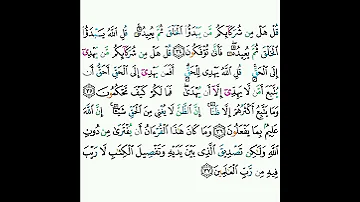 قُلْ هَلْ مِن شُرَكَآئِكُم مَّن يَبْدَؤُا۟ ٱلْخَلْقَ ثُمَّ يُعِيدُهُۥ ۚ قُلِ ٱللَّهُ يَبْدَؤُا۟
ٱلْخَلْقَ ثُمَّ يُعِيدُهُۥ ۖ فَأَنَّىٰ تُؤْفَكُونَ ٣٤ قُلْ هَلْ مِن شُرَكَآئِكُم مَّن يَهْدِىٓ
إِلَى ٱلْحَقِّ ۚ قُلِ ٱللَّهُ يَهْدِى لِلْحَقِّ ۗ أَفَمَن يَهْدِىٓ إِلَى ٱلْحَقِّ أَحَقُّ أَن
يُتَّبَعَ أَمَّن لَّا يَهِدِّىٓ إِلَّآ أَن يُهْدَىٰ ۖ فَمَا لَكُمْ كَيْفَ تَحْكُمُونَ ٣٥
وَمَا يَتَّبِعُ أَكْثَرُهُمْ إِلَّا ظَنًّا ۚ إِنَّ ٱلظَّنَّ لَا يُغْنِى مِنَ ٱلْحَقِّ شَيْـًٔا ۚ إِنَّ ٱللَّهَ
عَلِيمٌۢ بِمَا يَفْعَلُونَ ٣٦ وَمَا كَانَ هَٰذَا ٱلْقُرْءَانُ أَن يُفْتَرَىٰ مِن دُونِ
ٱللَّهِ وَلَٰكِن تَصْدِيقَ ٱلَّذِى بَيْنَ يَدَيْهِ وَتَفْصِيلَ ٱلْكِتَٰبِ لَا رَيْبَ
فِيهِ مِن رَّبِّ ٱلْعَٰلَمِينَ ٣٧